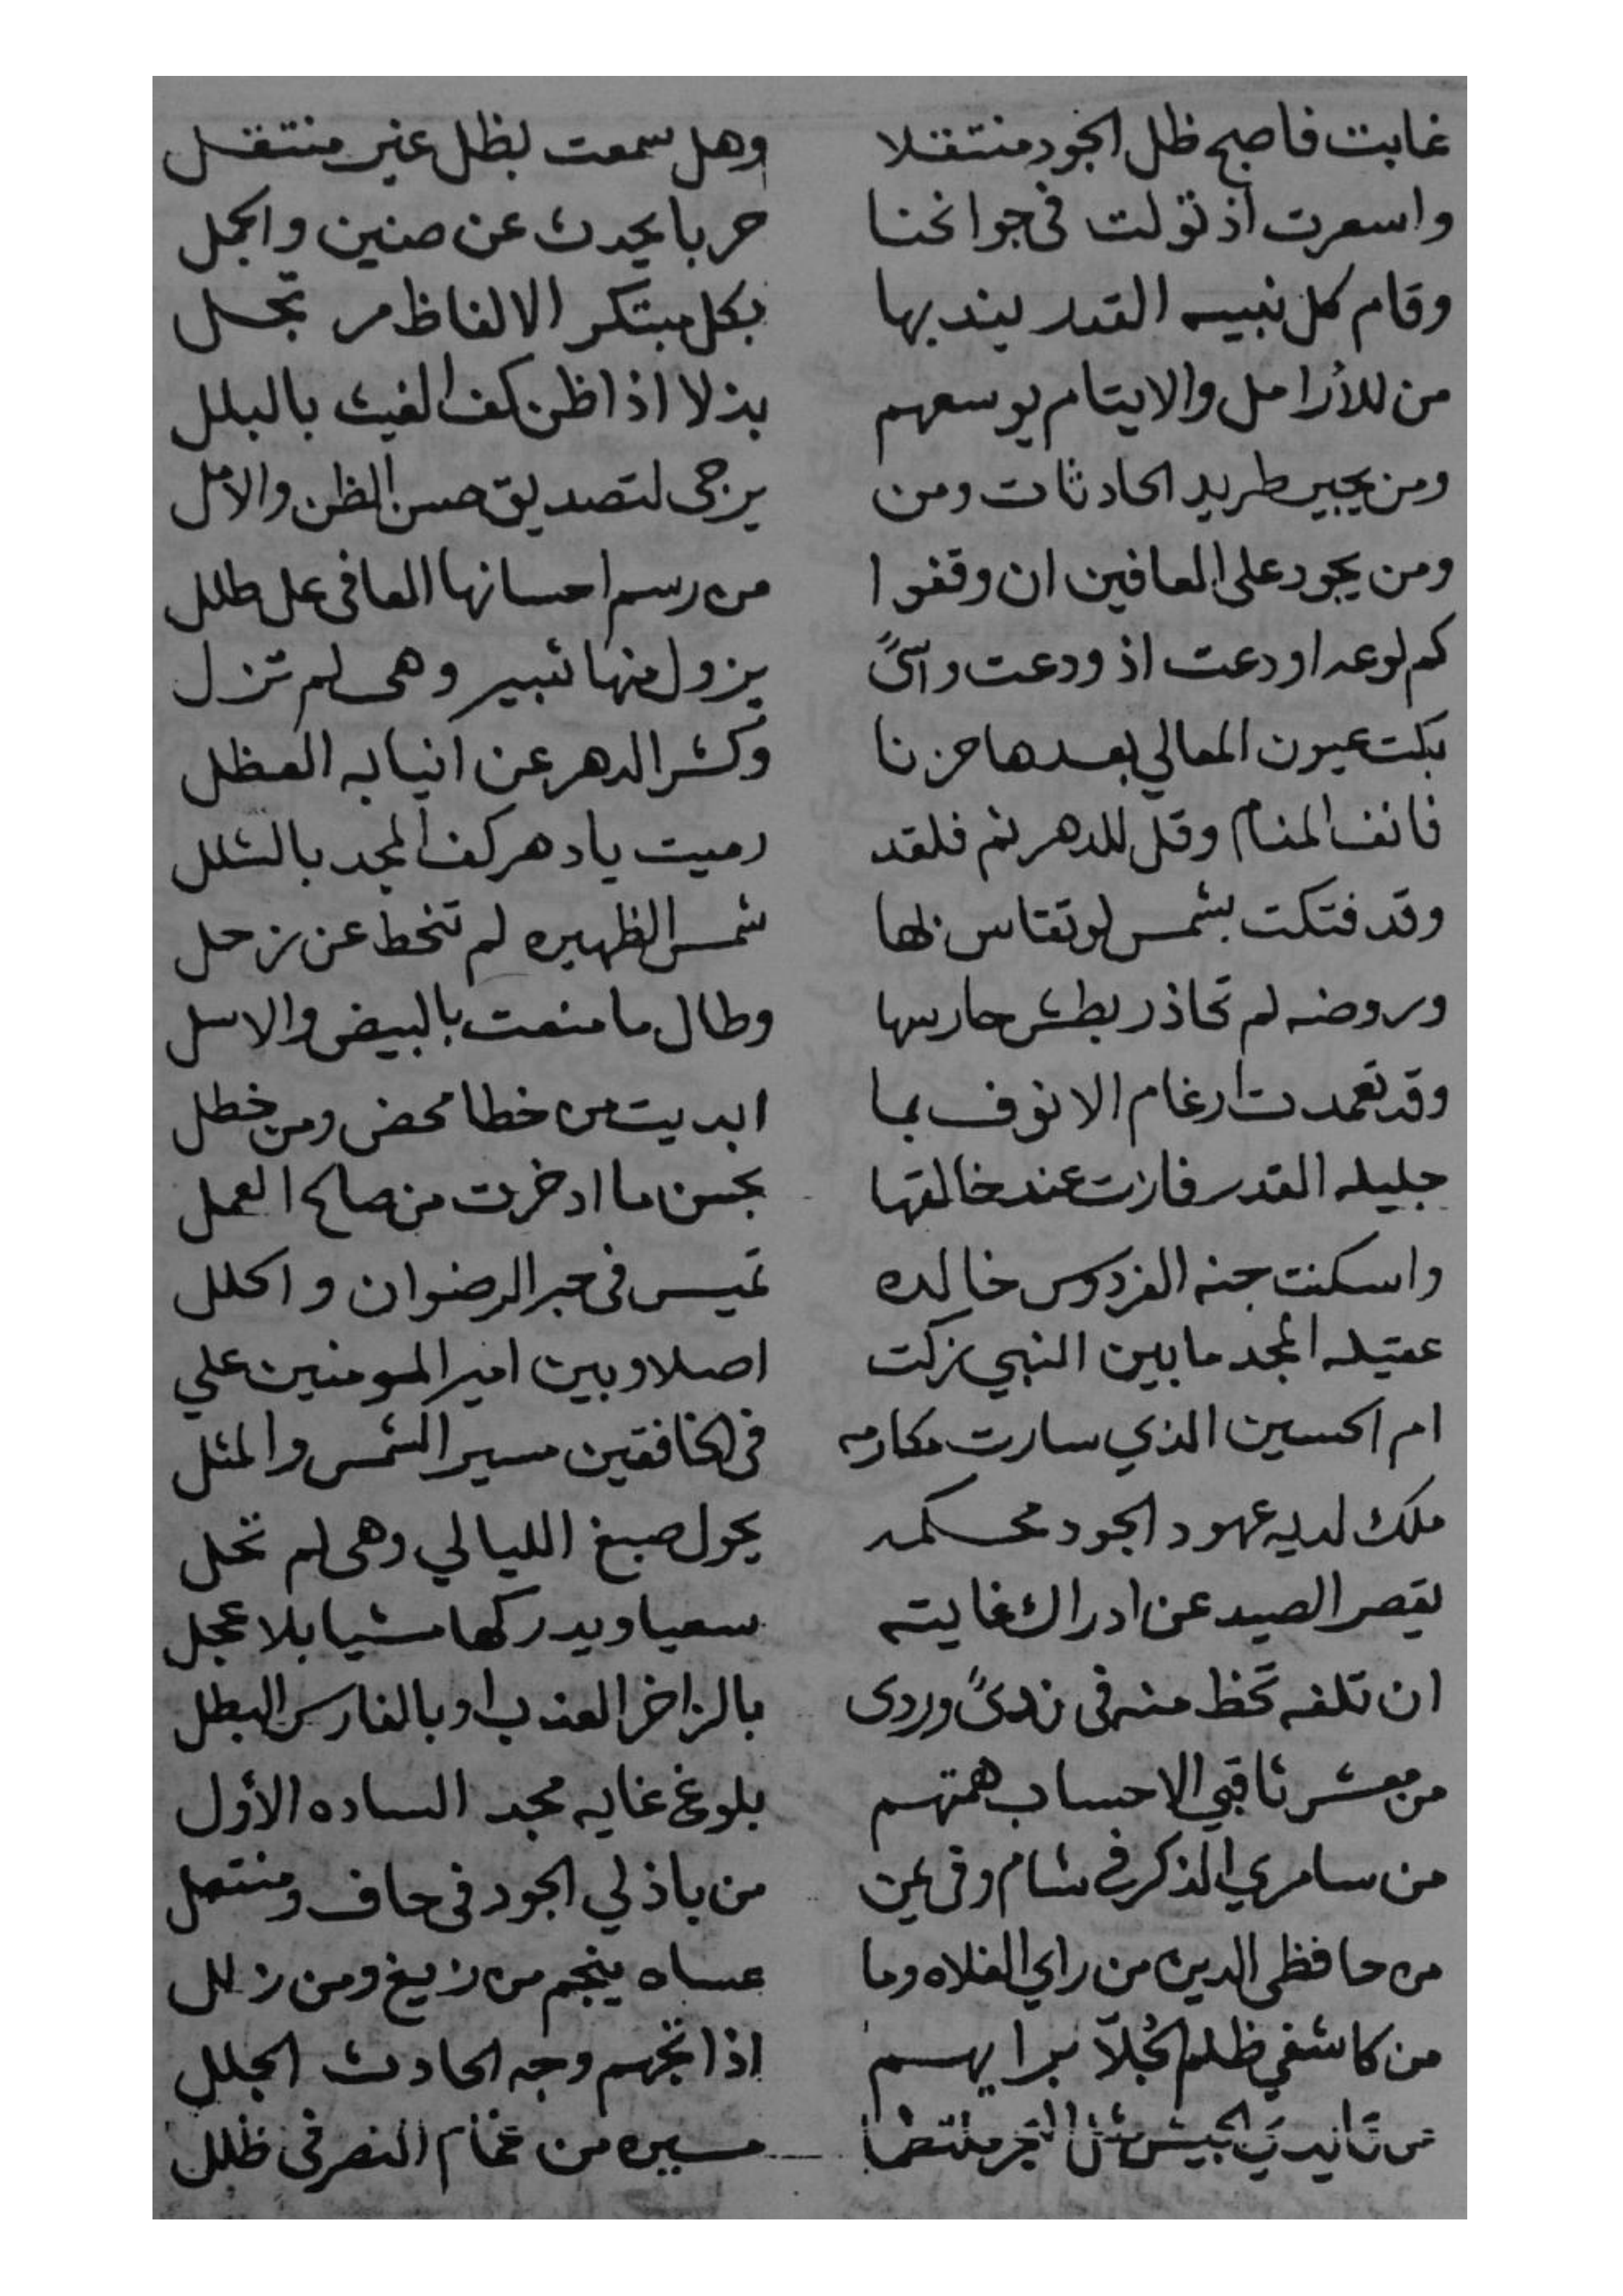 غابت فاصبح ظل الجود منتقلا وهل سمعت بظل غير منتقل
واسعرت اذ تولت في جوانحنا حربا يحدث عن صفين والجمل
وقام كل نبيه القدر يندبها بكل مبتكر الالفاظ مرتجل
من للأرامل والايتام يوسعهم بذلا اذا ظن كف الغيث بالبلل
ومن يجير طريد الحادثات ومن يرجى لتصديق حسن الظن والامل
ومن يجود على العافين ان وقفوا من رسم احسانها العافى على طلل
كم لوعه اودعت اذ ودعت واسىً يزول منها ثبير وهى لم تزل
بكت عيون المعالي بعدها حزنا وكشر الدهر عن انيابه العظل
فانف المنام وقل للدهر نم فلقد رميت يا دهر كف المجد بالشلل
وقد فتكت بشمس لو تقاس بها شمس الظهيره لم تنحط عن زحل
وروضه لم تحاذر بطش حارسها وطال ما منعت بالبيض والاسل
وقد تعمدت ارغام الانوف بما ابديت من خطا محض ومن خطل
جليله القدر فازت عند خالقها بحسن ما ادخرت من صالح العمل
واسكنت جنه الفردوس خالده تميس فى حبر الرضوان والحلل
عقيله المجد ما بين النبي زكت اصلا وبين امير المومنين علي
ام الحسين الذي سارت مكارمه فى الخافقين مسير الشمس والمثل
ملك لديه عهود الجود محكمه يحول صبغ الليالي وهى لم تحل
يقصر الصيد عن ادراك غايته سعيا ويدركها مشيا بلا عجل
ان تلفه تحظ منه فى ندىً وردى بالزاخر العذب او بالفارس البطل
من معشر ثاقبي الاحساب همتهم بلوغ غايه مجد الساده الأول
من سامري الذكر في شام وفى يمن من باذلي الجود فى حاف ومنتعل
من حافظى الدين من راي الغلاه وما عساه ينجم من زيغ ومن زلل
من كاشفي ظلم الجُلاّ برايهم اذا تجهم وجه الحادث الجلل
من الجيش مثل ملتطما مسيره من غمام النصر فى ظلل